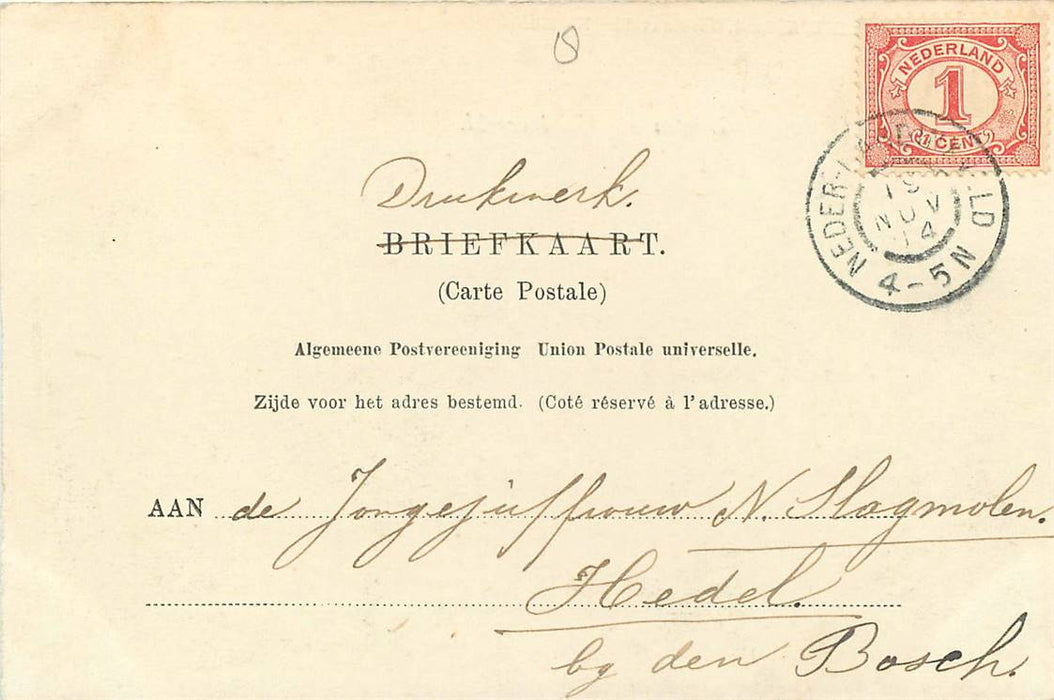 NEDERLAND
1
1 CENT
NEDER- LD
NOV
14
4-5N
Drukwerk.
BRIEFKAART.
(Carte Postale)
Algemeene Postvereeniging Union Postale universelle.
Zijde voor het adres bestemd. (Coté réservé à l'adresse.)
AAN de Jongejuffrouw N. Slagmolen.
Hedel.
by den Bosch.